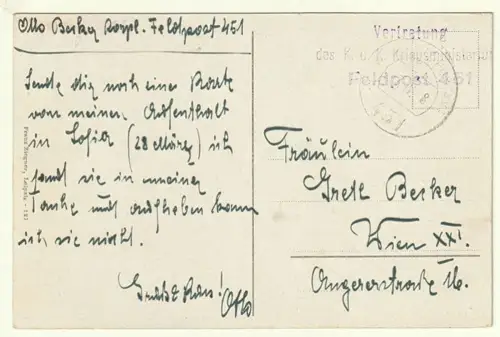 Otto Becker Korpl. Feldpost 451
Sende dir noch eine Karte
von meinem Aufenthalt
in Sofia (28 März) ich
fand sie in meiner
Tasche und aufheben kann
ich sie nicht.
Gruß & Kuss! Otto
Vertretung
des K. u. K. Kriegsministeriums
Feldpost 451
Fräulein
Gretl Becker
Wien XXI.
Angererstraße 16.